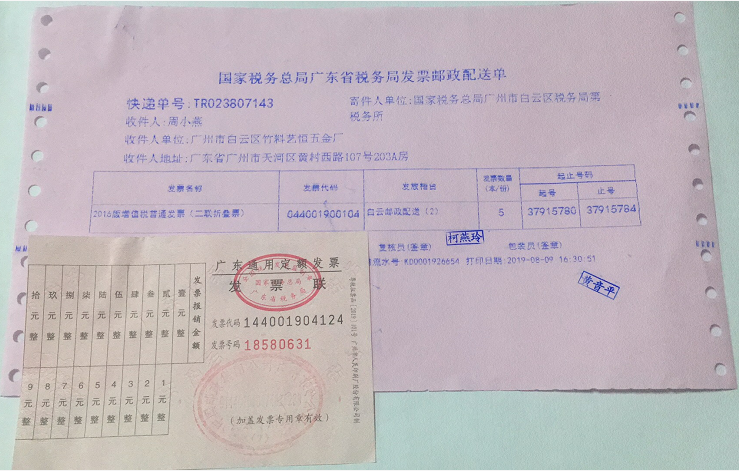 国家税务总局广东省税务局发票邮政配送单
快递单号:TR023807143
寄件人单位:国家税务总局广州市白云区税务局第
税务所
收件人:周小燕
收件人单位:广州市白云区竹料艺恒五金厂
收件人地址:广东省广州市天河区黄村西路107号203A房
发票名称 发票代码 发放栏目 发票数量(本/份) 起止号码
起号 止号
2016版增值税普通发票(二联折叠票) 044001900104 白云邮政配送(2) 5 37915780 37915784
复核员(签章) 柯燕玲 包装员(签章)
流水号 KD0001926654 打印日期:2019-08-09 16:30:51
黄音平
广东通用定额发票
发票联
国家税务总局
广东省税务局
发票代码 144001904124
发票号码 18580631
(加盖发票专用章有效)
发票报销金额
拾元整 玖元整 捌元整 柒元整 陆元整 伍元整 肆元整 叁元整 贰元整 壹元整
9元整 8元整 7元整 6元整 5元整 4元整 3元整 2元整 1元整